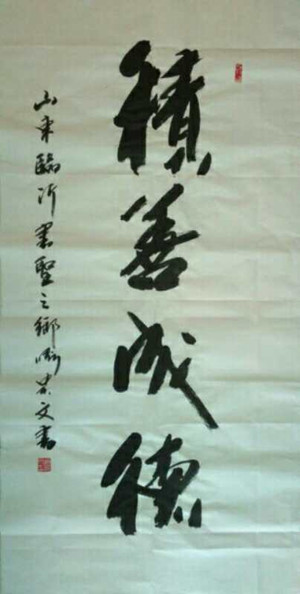 積善成德
山東臨沂書聖之鄉
文書